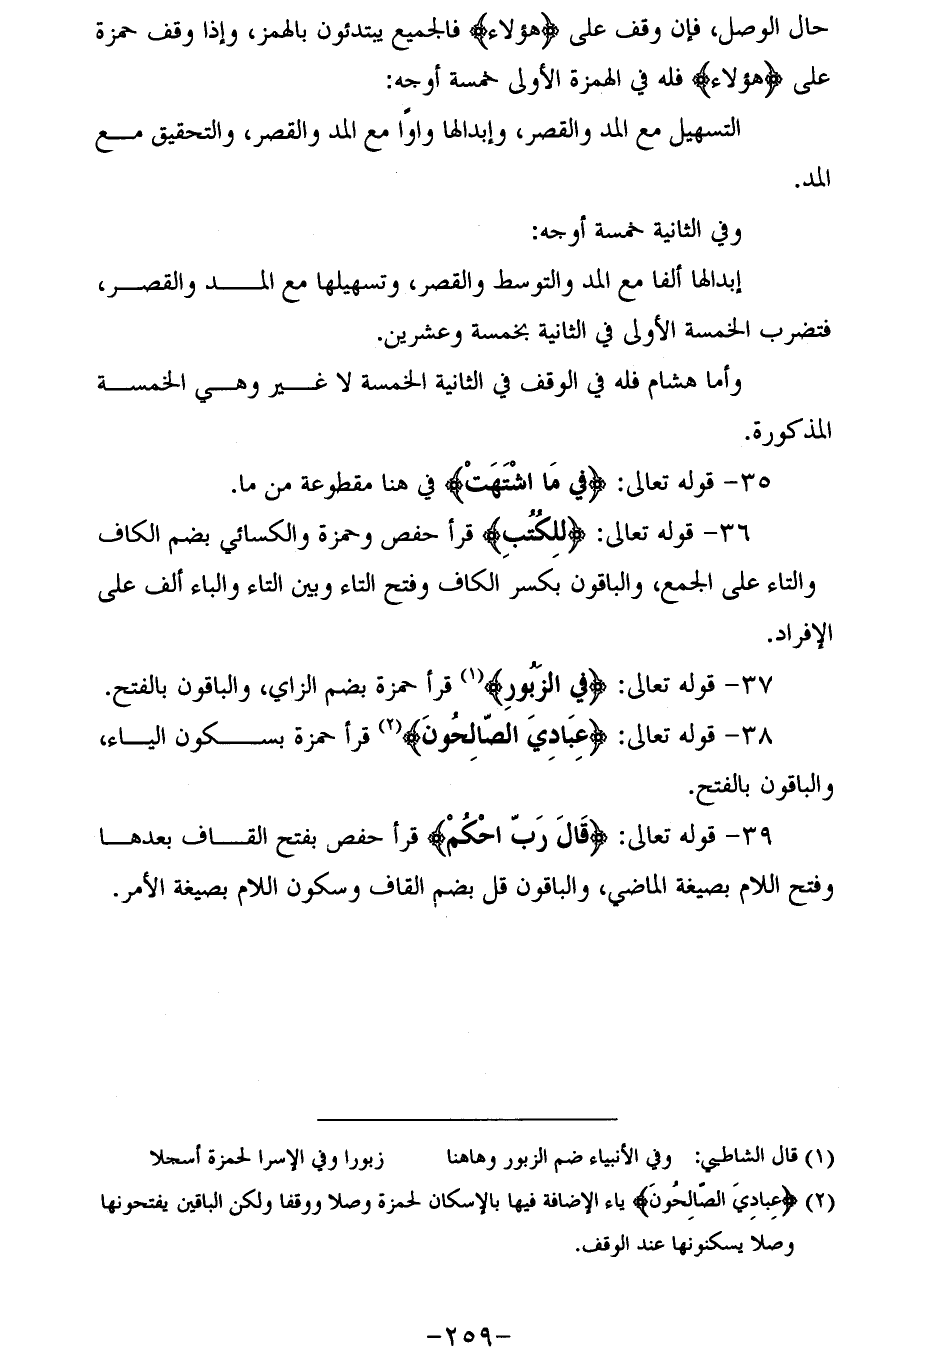 حال الوصل، فإن وقف على ﴿هؤلاء﴾ فالجميع يبتدئون بالهمز، وإذا وقف حمزة
على ﴿هؤلاء﴾ فله في الهمزة الأولى خمسة أوجه:
التسهيل مع المد والقصر، وإبدالها واوًا مع المد والقصر، والتحقيق مع
المد.
وفي الثانية خمسة أوجه:
إبدالها ألفا مع المد والتوسط والقصر، وتسهيلها مع المد والقصر،
فتضرب الخمسة الأولى في الثانية بخمسة وعشرين.
وأما هشام فله في الوقف في الثانية الخمسة لا غير وهي الخمسة
المذكورة.
٣٥- قوله تعالى: ﴿فِي مَا اشْتَهَتْ﴾ في هنا مقطوعة من ما.
٣٦- قوله تعالى: ﴿لِلكُتُبِ﴾ قرأ حفص وحمزة والكسائي بضم الكاف
والتاء على الجمع، والباقون بكسر الكاف وفتح التاء وبين التاء والباء ألف على
الإفراد.
٣٧- قوله تعالى: ﴿فِي الزَّبُورِ﴾(١) قرأ حمزة بضم الزاي، والباقون بالفتح.
٣٨- قوله تعالى: ﴿عِبَادِيَ الصَّالِحُونَ﴾(٢) قرأ حمزة بسكون الياء،
والباقون بالفتح.
٣٩- قوله تعالى: ﴿قَالَ رَبِّ احْكُمْ﴾ قرأ حفص بفتح القاف بعدها
وفتح اللام بصيغة الماضي، والباقون قل بضم القاف وسكون اللام بصيغة الأمر.
(١) قال الشاطبي: وفي الأنبياء ضم الزبور وهاهنا زبورا وفي الإسرا لحمزة أسجلا
(٢) ﴿عِبادِيَ الصَّالِحُونَ﴾ ياء الإضافة فيها بالإسكان لحمزة وصلا ووقفا ولكن الباقين يفتحونها
وصلا يسكنونها عند الوقف.
-٢٥٩-